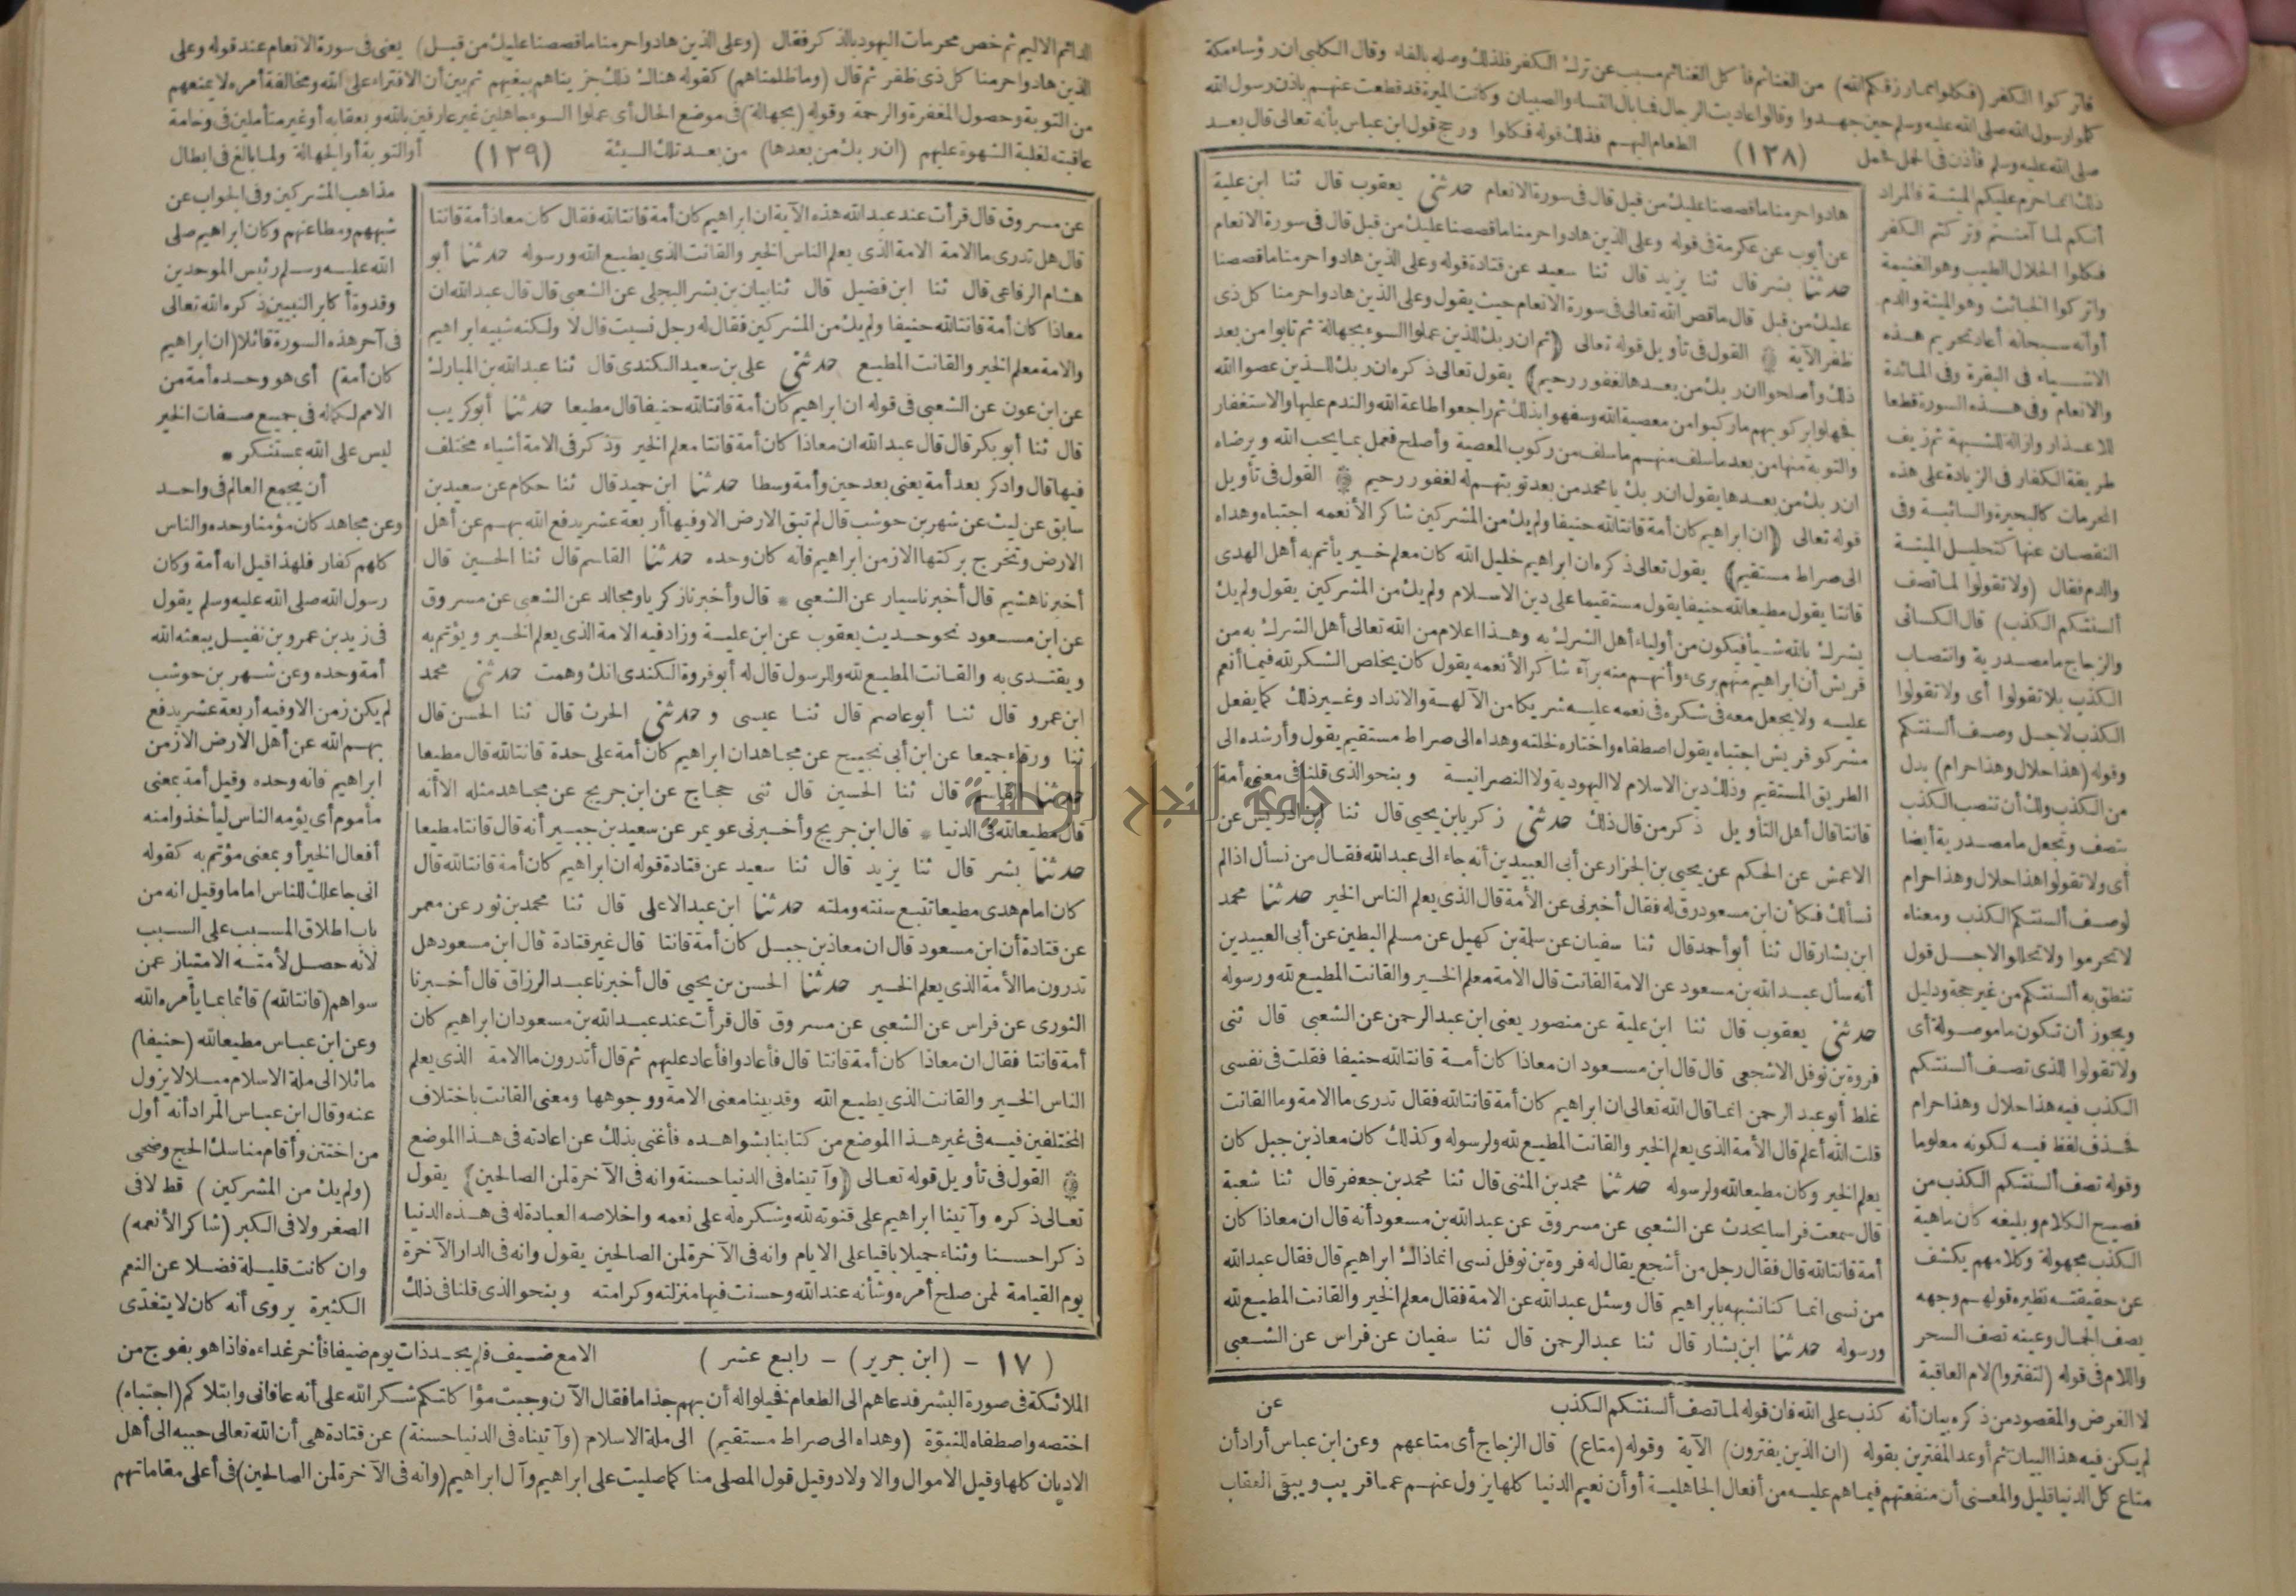 فاتركوا الكفر (فكلوا مما رزقكم الله) من الغنائم فأكل الغنائم مسبب عن ترك الكفر فلذلك وصله بالفاء وقال الكلبي ان رؤساء مكة
كلموا رسول الله صلى الله عليه وسلم حين جهدوا وقالوا عاديت الرجال فما بال النساء والصبيان وكانت الميرة قد قطعت عنهم باذن رسول الله
صلى الله عليه وسلم فأذن في الحمل فحمل (١٣٨) الطعام اليهم فذلك قوله فكلوا ورجح قول ابن عباس بأنه تعالى قال بعد
ذلك انما حرم عليكم الميتة فالمراد
أنكم لما آمنتم وتركتم الكفر
فكلوا الحلال الطيب وهو الغنيمة
واتركوا الخبائث وهو الميتة والدم
أو أنه سبحانه أعاد تحريم هذه
الاشياء في البقرة وفي المائدة
والانعام وفي هذه السورة قطعا
للاعذار وازالة للشبهة ثم زيف
طريقة الكفار في الزيادة على هذه
المحرمات كالبحيرة والسائبة وفي
النقصان عنها كتحليل الميتة
والدم فقال (ولا تقولوا لما تصف
ألسنتكم الكذب) قال الكسائي
والزجاج ما مصدرية وانتصاب
الكذب بلا تقولوا أي ولا تقولوا
الكذب لاجل وصف ألسنتكم
وقوله (هذا حلال وهذا حرام) بدل
من الكذب ولك أن تنصب الكذب
بتصف وتجعل ما مصدرية أيضا
أي ولا تقولوا هذا حلال وهذا حرام
لوصف ألسنتكم الكذب ومعناه
لا تحرموا ولا تحللوا لاجل قول
تنطق به ألسنتكم من غير حجة ودليل
ويجوز أن تكون ما موصولة أي
ولا تقولوا للذي تصف ألسنتكم
الكذب فيه هذا حلال وهذا حرام
فحذف لفظ فيه لكونه معلوما
وقوله تصف ألسنتكم الكذب من
فصيح الكلام وبليغه كان ماهية
الكذب مجهولة وكلامهم يكشف
عن حقيقته نظيره قولهم وجهه
يصف الجمال وعينه تصف السحر
واللام في قوله (لتفتروا) لام العاقبة
هادوا حرمنا ما قصصنا عليك من قبل قال في سورة الانعام حدثني يعقوب قال ثنا ابن علية
عن أيوب عن عكرمة في قوله وعلى الذين هادوا حرمنا ما قصصنا عليك من قبل قال في سورة الانعام
حدثنا بشر قال ثنا يزيد قال ثنا سعيد عن قتادة قوله وعلى الذين هادوا حرمنا ما قصصنا
عليك من قبل قال ما قص الله تعالى في سورة الانعام حيث يقول وعلى الذين هادوا حرمنا كل ذي
ظفر الآية القول في تأويل قوله تعالى (ثم ان ربك للذين عملوا السوء بجهالة ثم تابوا من بعد
ذلك وأصلحوا ان ربك من بعدها لغفور رحيم) يقول تعالى ذكره ان ربك للذين عصوا الله
فجهلوا بركوبهم ما ركبوا من معصية الله وسفهوا بذلك ثم راجعوا طاعة الله والندم عليها والاستغفار
والتوبة منها من بعد ما سلف منهم ما سلف من ركوب المعصية وأصلح فعمل بما يحب الله ويرضاه
ان ربك من بعدها يقول ان ربك يا محمد من بعد توبتهم له لغفور رحيم القول في تأويل
قوله تعالى (ان ابراهيم كان أمة قانتا لله حنيفا ولم يك من المشركين شاكرا لأنعمه اجتباه وهداه
الى صراط مستقيم) يقول تعالى ذكره ان ابراهيم خليل الله كان معلم خير يأتم به أهل الهدى
قانتا يقول مطيعا لله حنيفا يقول مستقيما على دين الاسلام ولم يك من المشركين يقول ولم يك
يشرك بالله شيأ فيكون من أولياء أهل الشرك به وهذا اعلام من الله تعالى أهل الشرك به من
قريش أن ابراهيم منهم بريء وأنهم منه برآء شاكرا لأنعمه يقول كان يخلص الشكر لله فيما أنعم
عليه ولا يجعل معه في شكره في نعمه عليه شريكا من الآلهة والانداد وغير ذلك كما يفعل
مشركو قريش اجتباه يقول اصطفاه واختاره لخلته وهداه الى صراط مستقيم يقول وأرشده الى
الطريق المستقيم وذلك دين الاسلام لا اليهودية ولا النصرانية وبنحو الذي قلنا في معنى أمة
قانتا قال أهل التأويل ذكر من قال ذلك حدثني زكريا بن يحيى قال ثنا ابن ادريس عن
الاعمش عن الحكم عن يحيى بن الجزار عن أبي العبيدين أنه جاء الى عبد الله فقال من نسأل اذا لم
نسألك فكأن ابن مسعود رق له فقال أخبرني عن الأمة قال الذي يعلم الناس الخير حدثنا محمد
ابن بشار قال ثنا أبو أحمد قال ثنا سفيان عن سلمة بن كهيل عن مسلم البطين عن أبي العبيدين
أنه سأل عبد الله بن مسعود عن الامة القانت قال الامة معلم الخير والقانت المطيع لله ورسوله
حدثني يعقوب قال ثنا ابن علية عن منصور يعني ابن عبد الرحمن عن الشعبي قال ثني
فروة بن نوفل الاشجعي قال قال ابن مسعود ان معاذا كان أمة قانتا لله حنيفا فقلت في نفسي
غلط أبو عبد الرحمن انما قال الله تعالى ان ابراهيم كان أمة قانتا لله فقال تدري ما الامة وما القانت
قلت الله أعلم قال الأمة الذي يعلم الخير والقانت المطيع لله ولرسوله وكذلك كان معاذ بن جبل كان
يعلم الخير وكان مطيعا لله ولرسوله حدثنا محمد بن المثنى قال ثنا محمد بن جعفر قال ثنا شعبة
قال سمعت فراسا يحدث عن الشعبي عن مسروق عن عبد الله بن مسعود أنه قال ان معاذا كان
أمة قانتا لله قال فقال رجل من أشجع يقال له فروة بن نوفل نسي انما ذاك ابراهيم قال فقال عبد الله
من نسي انما كنا نشبهه بابراهيم قال وسئل عبد الله عن الامة فقال معلم الخير والقانت المطيع لله
ورسوله حدثنا ابن بشار قال ثنا عبد الرحمن قال ثنا سفيان عن فراس عن الشعبي
عن
لا الغرض والمقصود من ذكره بيان أنه كذب على الله فان قوله لما تصف ألسنتكم الكذب
لم يكن فيه هذا البيان ثم أوعد المفترين بقوله (ان الذين يفترون) الآية وقوله (متاع) قال الزجاج أي متاعهم وعن ابن عباس أراد أن
متاع كل الدنيا قليل والمعنى أن منفعتهم فيما هم عليه من أفعال الجاهلية أو أن نعيم الدنيا كلها يزول عنهم عما قريب ويبقى العقاب
الدائم الاليم ثم خص محرمات اليهود بالذكر فقال (وعلى الذين هادوا حرمنا ما قصصنا عليك من قبل) يعني في سورة الانعام عند قوله وعلى
الذين هادوا حرمنا كل ذي ظفر ثم قال (وما ظلمناهم) كقوله هناك ذلك جزيناهم ببغيهم ثم بين أن الافتراء على الله ومخالفة أمره لا يمنعهم
من التوبة وحصول المغفرة والرحمة وقوله (بجهالة) في موضع الحال أي عملوا السوء جاهلين غير عارفين بالله وبعقابه أو غير متأملين في وخامة
عاقبته لغلبة الشهوة عليهم (ان ربك من بعدها) من بعد تلك السيئة (١٢٩) أو التوبة أو الجهالة ولما بالغ في ابطال
عن مسروق قال قرأت عند عبد الله هذه الآية ان ابراهيم كان أمة قانتا لله فقال كان معاذ أمة قانتا
قال هل تدري ما الامة الامة الذي يعلم الناس الخير والقانت الذي يطيع الله ورسوله حدثنا أبو
هشام الرفاعي قال ثنا ابن فضيل قال ثنا بيان بن بشر البجلي عن الشعبي قال قال عبد الله ان
معاذا كان أمة قانتا لله حنيفا ولم يك من المشركين فقال له رجل نسيت قال لا ولكنه شبيه ابراهيم
والامة معلم الخير والقانت المطيع حدثني علي بن سعيد الكندي قال ثنا عبد الله بن المبارك
عن ابن عون عن الشعبي في قوله ان ابراهيم كان أمة قانتا لله حنيفا قال مطيعا حدثنا أبو كريب
قال ثنا أبو بكر قال قال عبد الله ان معاذا كان أمة قانتا معلم الخير وذكر في الامة أشياء مختلف
فيها قال وادكر بعد أمة يعني بعد حين وأمة وسطا حدثنا ابن حميد قال ثنا حكام عن سعيد بن
سابق عن ليث عن شهر بن حوشب قال لم تبق الارض الا وفيها أربعة عشر يدفع الله بهم عن أهل
الارض وتخرج بركتها الا زمن ابراهيم فانه كان وحده حدثنا القاسم قال ثنا الحسين قال
أخبرنا هشيم قال أخبرنا سيار عن الشعبي * قال وأخبرنا زكريا ومجالد عن الشعبي عن مسروق
عن ابن مسعود نحو حديث يعقوب عن ابن علية وزاد فيه الامة الذي يعلم الخير ويؤتم به
ويقتدى به والقانت المطيع لله وللرسول قال له أبو فروة الكندي انك وهمت حدثني محمد
ابن عمرو قال ثنا أبو عاصم قال ثنا عيسى وحدثني الحرث قال ثنا الحسن قال
ثنا ورقاء جميعا عن ابن أبي نجيح عن مجاهد ان ابراهيم كان أمة على حدة قانتا لله قال مطيعا
حدثنا القاسم قال ثنا الحسين قال ثني حجاج عن ابن جريج عن مجاهد مثله الا أنه
قال مطيعا لله في الدنيا * قال ابن جريج وأخبرني عويمر عن سعيد بن جبير أنه قال قانتا مطيعا
حدثنا بشر قال ثنا يزيد قال ثنا سعيد عن قتادة قوله ان ابراهيم كان أمة قانتا لله قال
كان امام هدى مطيعا تتبع سنته وملته حدثنا ابن عبد الاعلى قال ثنا محمد بن ثور عن معمر
عن قتادة أن ابن مسعود قال ان معاذ بن جبل كان أمة قانتا قال غير قتادة قال ابن مسعود هل
تدرون ما الأمة الذي يعلم الخير حدثنا الحسن بن يحيى قال أخبرنا عبد الرزاق قال أخبرنا
الثوري عن فراس عن الشعبي عن مسروق قال قرأت عند عبد الله بن مسعود ان ابراهيم كان
أمة قانتا فقال ان معاذا كان أمة قانتا قال فأعادوا فأعاد عليهم ثم قال أتدرون ما الامة الذي يعلم
الناس الخير والقانت الذي يطيع الله وقد بينا معنى الامة ووجوهها ومعنى القانت باختلاف
المختلفين فيه في غير هذا الموضع من كتابنا بشواهده فأغنى بذلك عن اعادته في هذا الموضع
القول في تأويل قوله تعالى (وآتيناه في الدنيا حسنة وانه في الآخرة لمن الصالحين) يقول
تعالى ذكره وآتينا ابراهيم على قنوته لله وشكره له على نعمه واخلاصه العبادة له في هذه الدنيا
ذكرا حسنا وثناء جميلا باقيا على الايام وانه في الآخرة لمن الصالحين يقول وانه في الدار الآخرة
يوم القيامة لمن صلح أمره وشأنه عند الله وحسنت فيها منزلته وكرامته وبنحو الذي قلنا في ذلك
مذاهب المشركين وفي الجواب عن
شبههم ومطاعنهم وكان ابراهيم صلى
الله عليه وسلم رئيس الموحدين
وقدوة أكابر النبيين ذكره الله تعالى
في آخر هذه السورة قائلا (ان ابراهيم
كان أمة) أي هو وحده أمة من
الامم لكماله في جميع صفات الخير
ليس على الله بمستنكر *
أن يجمع العالم في واحد
وعن مجاهد كان مؤمنا وحده والناس
كلهم كفار فلهذا قيل انه أمة وكان
رسول الله صلى الله عليه وسلم يقول
في زيد بن عمرو بن نفيل يبعثه الله
أمة وحده وعن شهر بن حوشب
لم يكن زمن الا وفيه أربعة عشر يدفع
بهم الله عن أهل الارض الا زمن
ابراهيم فانه وحده وقيل أمة بمعنى
مأموم أي يؤمه الناس ليأخذوا منه
أفعال الخير أو بمعنى مؤتم به كقوله
اني جاعلك للناس اماما وقيل انه من
باب اطلاق المسبب على السبب
لانه حصل لأمته الامتياز عمن
سواهم (قانتا لله) قائما بما يأمره الله
وعن ابن عباس مطيعا لله (حنيفا)
مائلا الى ملة الاسلام ميلا لا يزول
عنه وقال ابن عباس المراد أنه أول
من اختتن وأقام مناسك الحج وضحى
(ولم يك من المشركين) قط لا في
الصغر ولا في الكبر (شاكرا لأنعمه)
وان كانت قليلة فضلا عن النعم
الكثيرة يروى أنه كان لا يتغدى
(١٧ - (ابن جرير) - رابع عشر) الا مع ضيف فلم يجد ذات يوم ضيفا فأخر غداءه فاذا هو بفوج من
الملائكة في صورة البشر فدعاهم الى الطعام فخيلوا له أن بهم جذاما فقال الآن وجبت مؤاكلتكم شكرا لله على أنه عافاني وابتلاكم (اجتباه)
اختصه واصطفاه للنبوة (وهداه الى صراط مستقيم) الى ملة الاسلام (وآتيناه في الدنيا حسنة) عن قتادة هي أن الله تعالى حببه الى أهل
الاديان كلها وقيل الاموال والاولاد وقيل قول المصلي منا كما صليت على ابراهيم وآل ابراهيم (وانه في الآخرة لمن الصالحين) في أعلى مقاماتهم
جامعة النجاح الوطنية